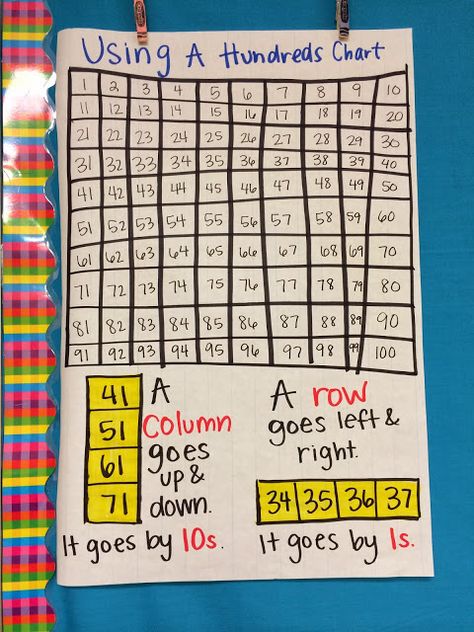 Using A Hundreds Chart
1 2 3 4 5 6 7 8 9 10
11 12 13 14 15 16 17 18 19 20
21 22 23 24 25 26 27 28 29 30
31 32 33 34 35 36 37 38 39 40
41 42 43 44 45 46 47 48 49 50
51 52 53 54 55 56 57 58 59 60
61 62 63 64 65 66 67 68 69 70
71 72 73 74 75 76 77 78 79 80
81 82 83 84 85 86 87 88 89 90
91 92 93 94 95 96 97 98 99 100
41
51
61
71
A
column
goes
up &
down.
It goes by 10s.
A row
goes left &
right.
34 35 36 37
It goes by 1s.